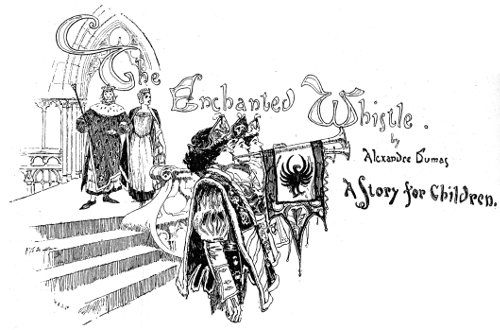 The Enchanted Whistle.
by
Alexandre Dumas
A Story for Children.